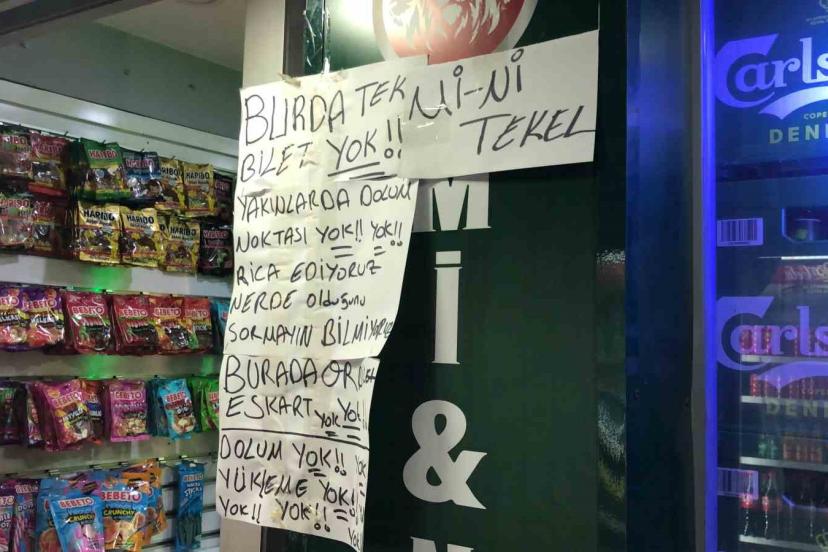 BURDA TEK
BİLET YOK!!
Mİ-Nİ
TEKEL
YAKINLARDA DOLUM
NOKTASI YOK!! YOK!!
RİCA EDİYORUZ
NERDE OLDUĞUNU
SORMAYIN BİLMİYORUZ
BURADA
ESKART YOK YOK!!
DOLUM YOK!! YOK
YÜKLEME YOK!
YOK!! YOK!!
Mİ
&
Carls
COPE
DENI
Carls
DENI
HARIBO
HARIBO
HARIBO
HARIBO
HARIBO
BEBETO
BEBETO
BEBETO
BEBETO
BEBETO
BEBETO
BEBETO
CRUNCHY